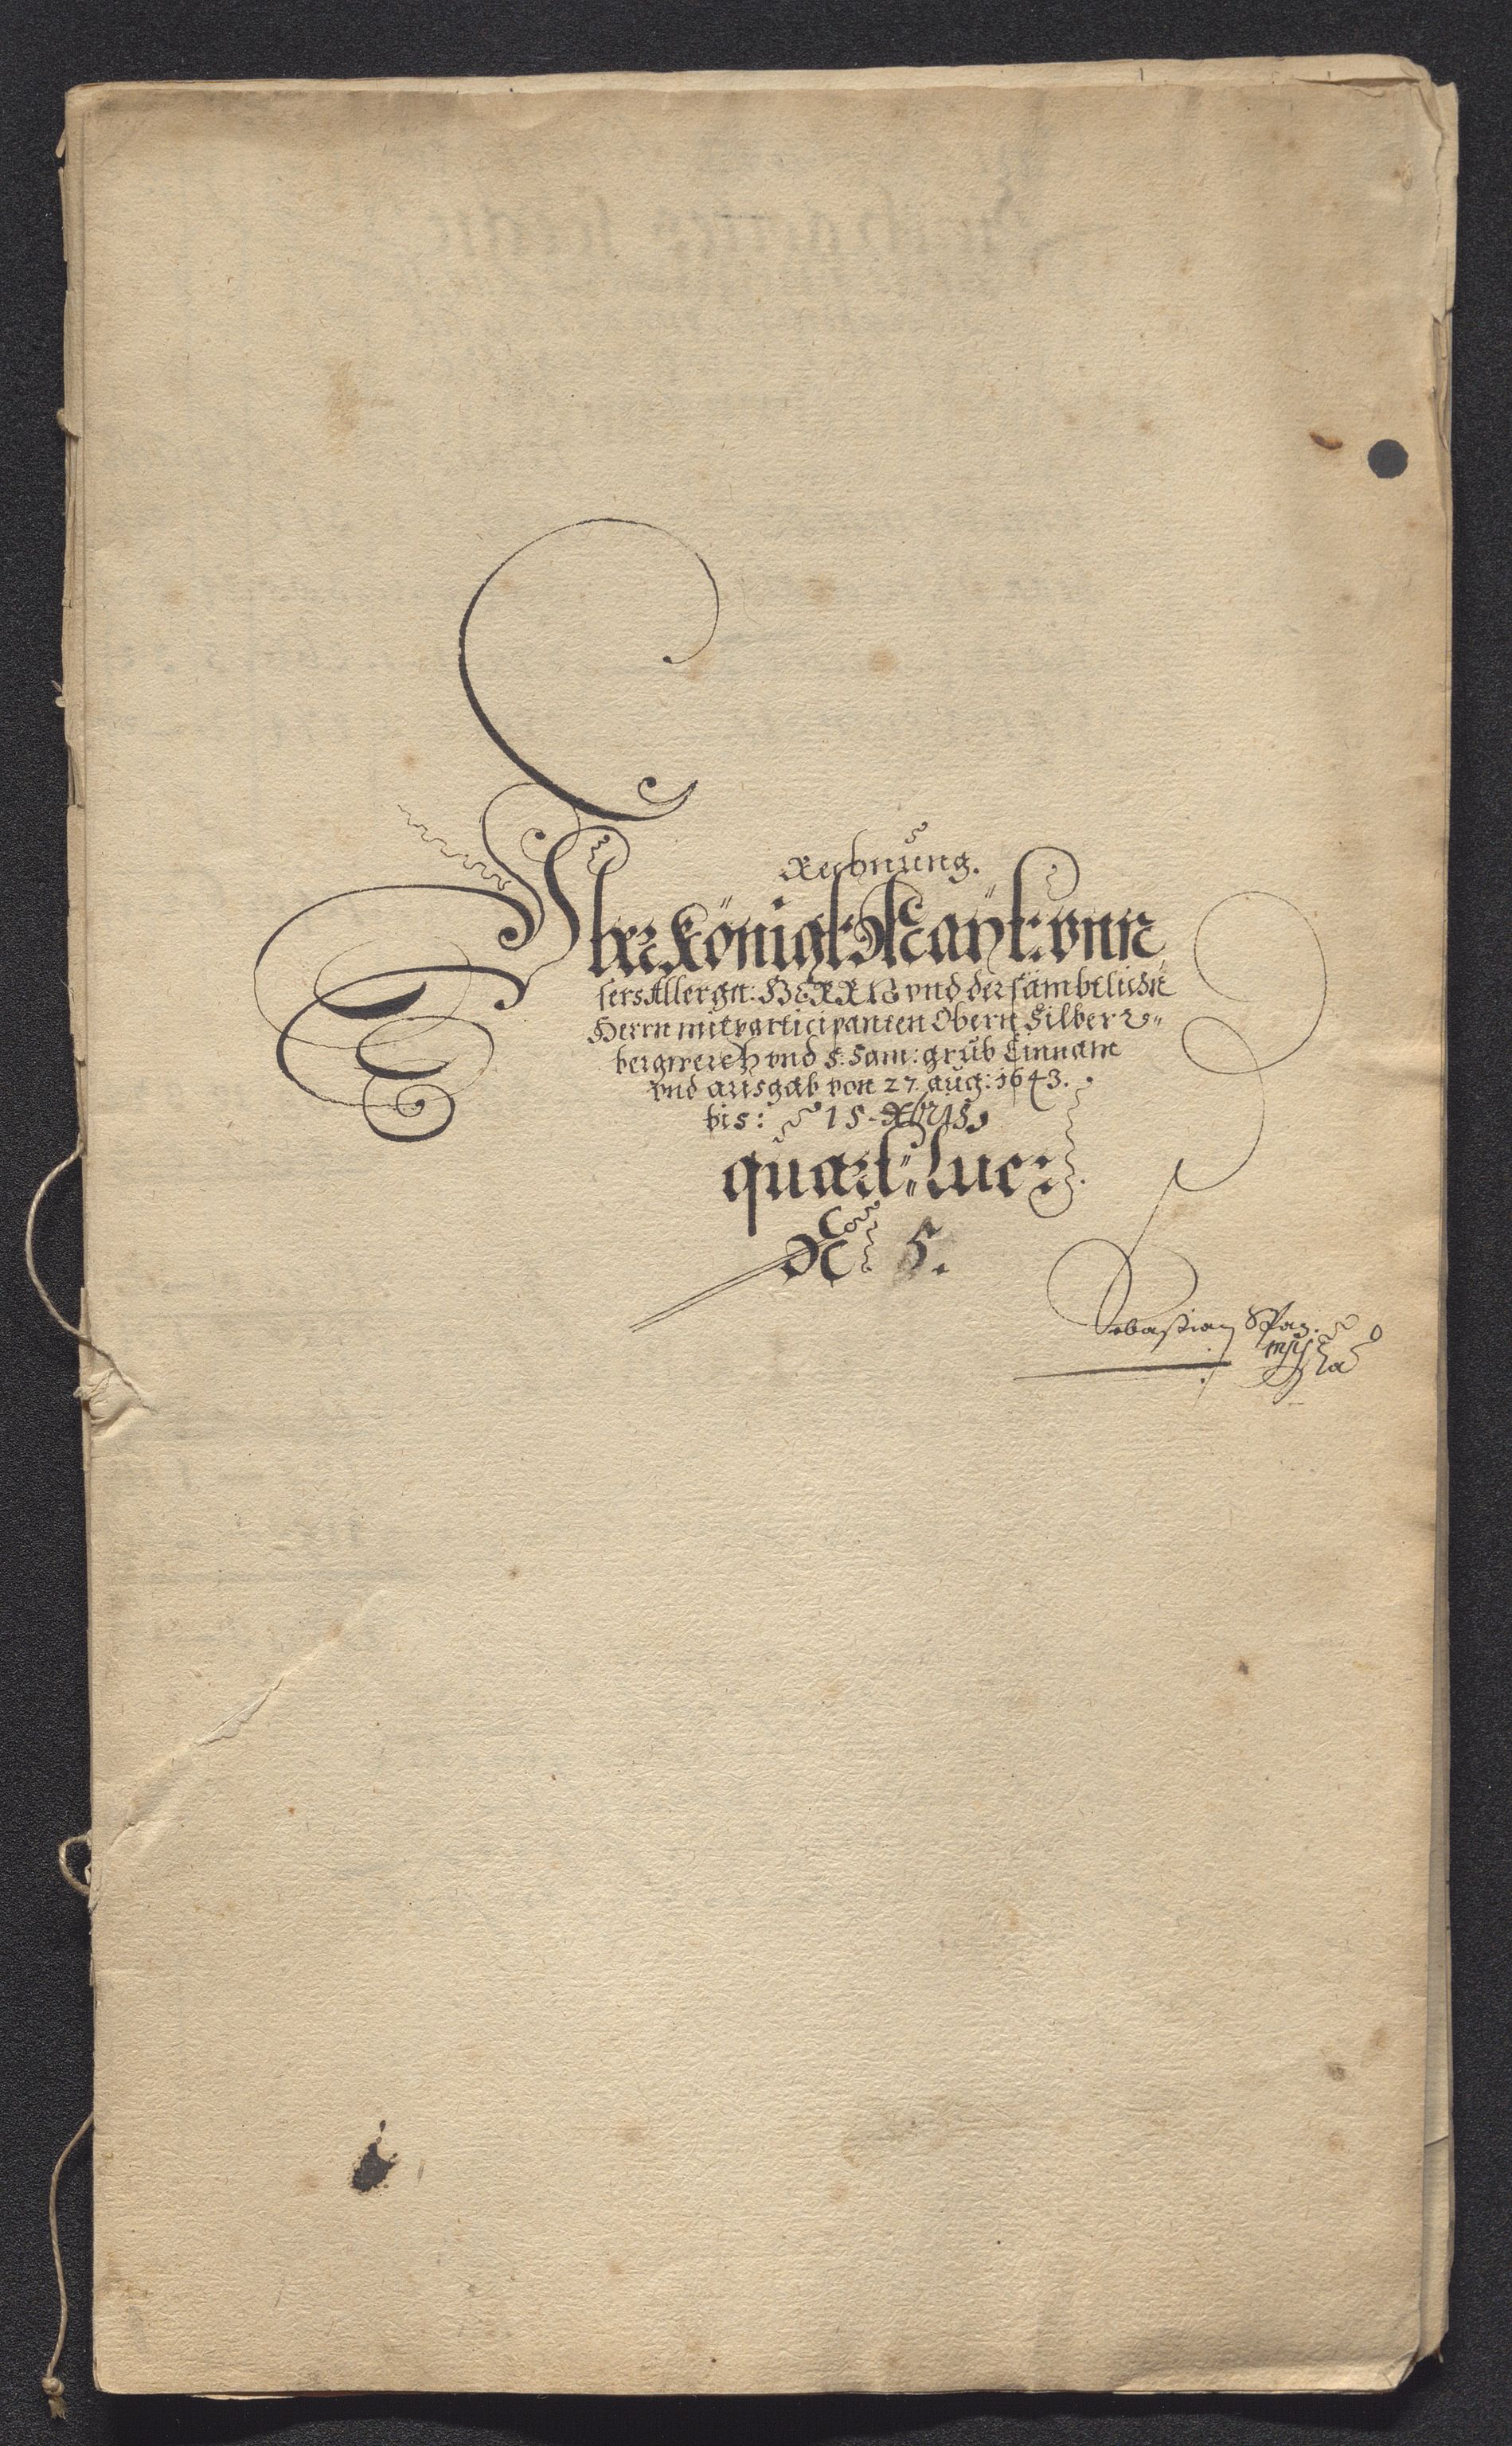 Rechnung.
Über Königl: Mayt: vnn
sers Allergn: HERRN vnd der sämbtlichn
Herrn mitparticipanten Obern Silber
bergwerch vnd S: Sam: grub Einnam
vnd ausgab von 27. aug: 1643.
bis: 15 Xbris
quart: Luciæ
N: 5.
Sebastian Span.